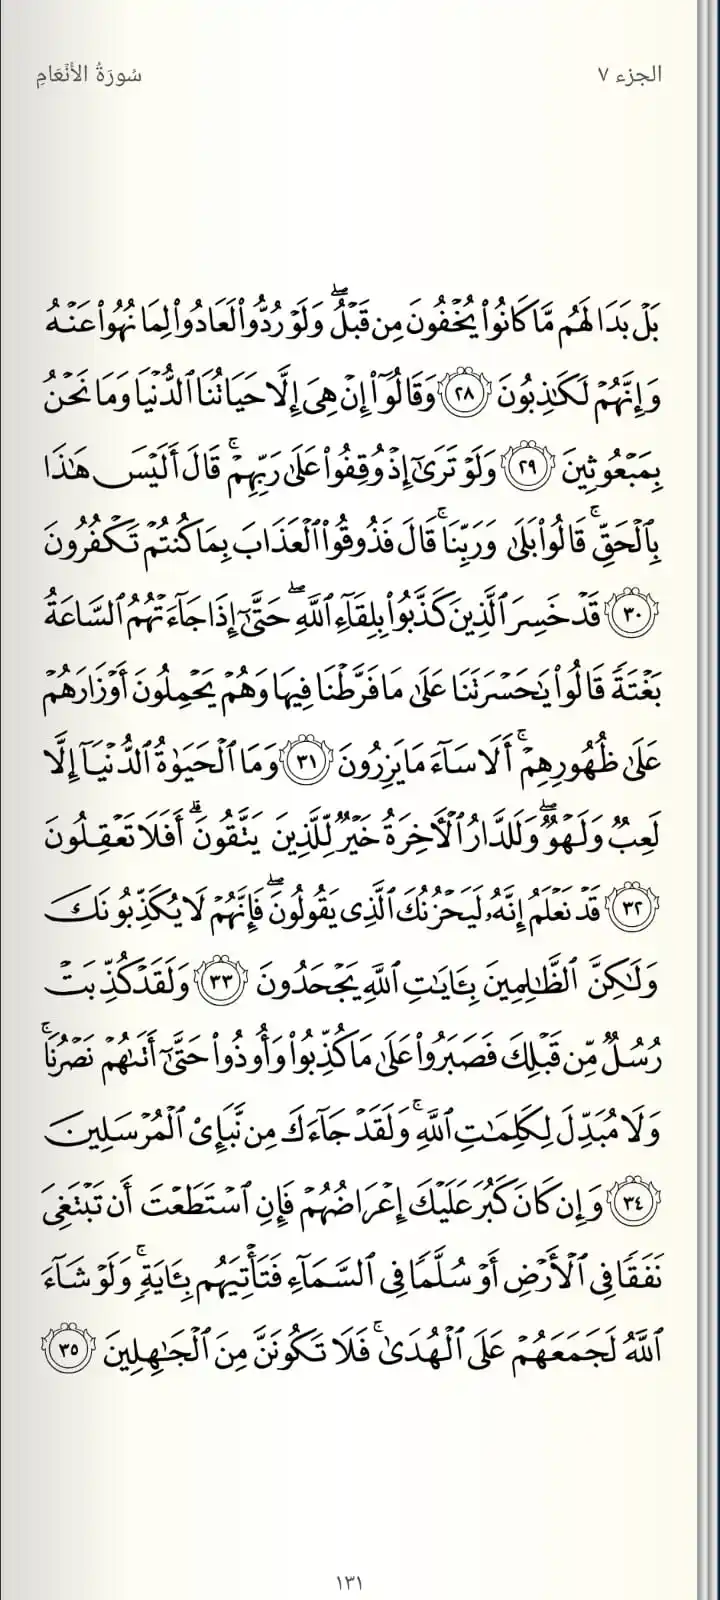 الجزء ٧
سُورَةُ الأَنْعَامِ
بَلْ بَدَا لَهُم مَّا كَانُوا۟ يُخْفُونَ مِن قَبْلُ ۖ وَلَوْ رُدُّوا۟ لَعَادُوا۟ لِمَا نُهُوا۟ عَنْهُ
وَإِنَّهُمْ لَكَـٰذِبُونَ ٢٨ وَقَالُوٓا۟ إِنْ هِىَ إِلَّا حَيَاتُنَا ٱلدُّنْيَا وَمَا نَحْنُ
بِمَبْعُوثِينَ ٢٩ وَلَوْ تَرَىٰٓ إِذْ وُقِفُوا۟ عَلَىٰ رَبِّهِمْ ۚ قَالَ أَلَيْسَ هَـٰذَا
بِٱلْحَقِّ ۚ قَالُوا۟ بَلَىٰ وَرَبِّنَا ۚ قَالَ فَذُوقُوا۟ ٱلْعَذَابَ بِمَا كُنتُمْ تَكْفُرُونَ
٣٠ قَدْ خَسِرَ ٱلَّذِينَ كَذَّبُوا۟ بِلِقَآءِ ٱللَّهِ ۖ حَتَّىٰٓ إِذَا جَآءَتْهُمُ ٱلسَّاعَةُ
بَغْتَةً قَالُوا۟ يَـٰحَسْرَتَنَا عَلَىٰ مَا فَرَّطْنَا فِيهَا وَهُمْ يَحْمِلُونَ أَوْزَارَهُمْ
عَلَىٰ ظُهُورِهِمْ ۚ أَلَا سَآءَ مَا يَزِرُونَ ٣١ وَمَا ٱلْحَيَوٰةُ ٱلدُّنْيَآ إِلَّا
لَعِبٌ وَلَهْوٌ ۖ وَلَلدَّارُ ٱلْـَٔاخِرَةُ خَيْرٌ لِّلَّذِينَ يَتَّقُونَ ۗ أَفَلَا تَعْقِلُونَ
٣٢ قَدْ نَعْلَمُ إِنَّهُۥ لَيَحْزُنُكَ ٱلَّذِى يَقُولُونَ ۖ فَإِنَّهُمْ لَا يُكَذِّبُونَكَ
وَلَـٰكِنَّ ٱلظَّـٰلِمِينَ بِـَٔايَـٰتِ ٱللَّهِ يَجْحَدُونَ ٣٣ وَلَقَدْ كُذِّبَتْ
رُسُلٌ مِّن قَبْلِكَ فَصَبَرُوا۟ عَلَىٰ مَا كُذِّبُوا۟ وَأُوذُوا۟ حَتَّىٰٓ أَتَىٰهُمْ نَصْرُنَا ۚ
وَلَا مُبَدِّلَ لِكَلِمَـٰتِ ٱللَّهِ ۚ وَلَقَدْ جَآءَكَ مِن نَّبَإِى۟ ٱلْمُرْسَلِينَ
٣٤ وَإِن كَانَ كَبُرَ عَلَيْكَ إِعْرَاضُهُمْ فَإِنِ ٱسْتَطَعْتَ أَن تَبْتَغِىَ
نَفَقًا فِى ٱلْأَرْضِ أَوْ سُلَّمًا فِى ٱلسَّمَآءِ فَتَأْتِيَهُم بِـَٔايَةٍ ۚ وَلَوْ شَآءَ
ٱللَّهُ لَجَمَعَهُمْ عَلَى ٱلْهُدَىٰ ۚ فَلَا تَكُونَنَّ مِنَ ٱلْجَـٰهِلِينَ ٣٥
١٣١